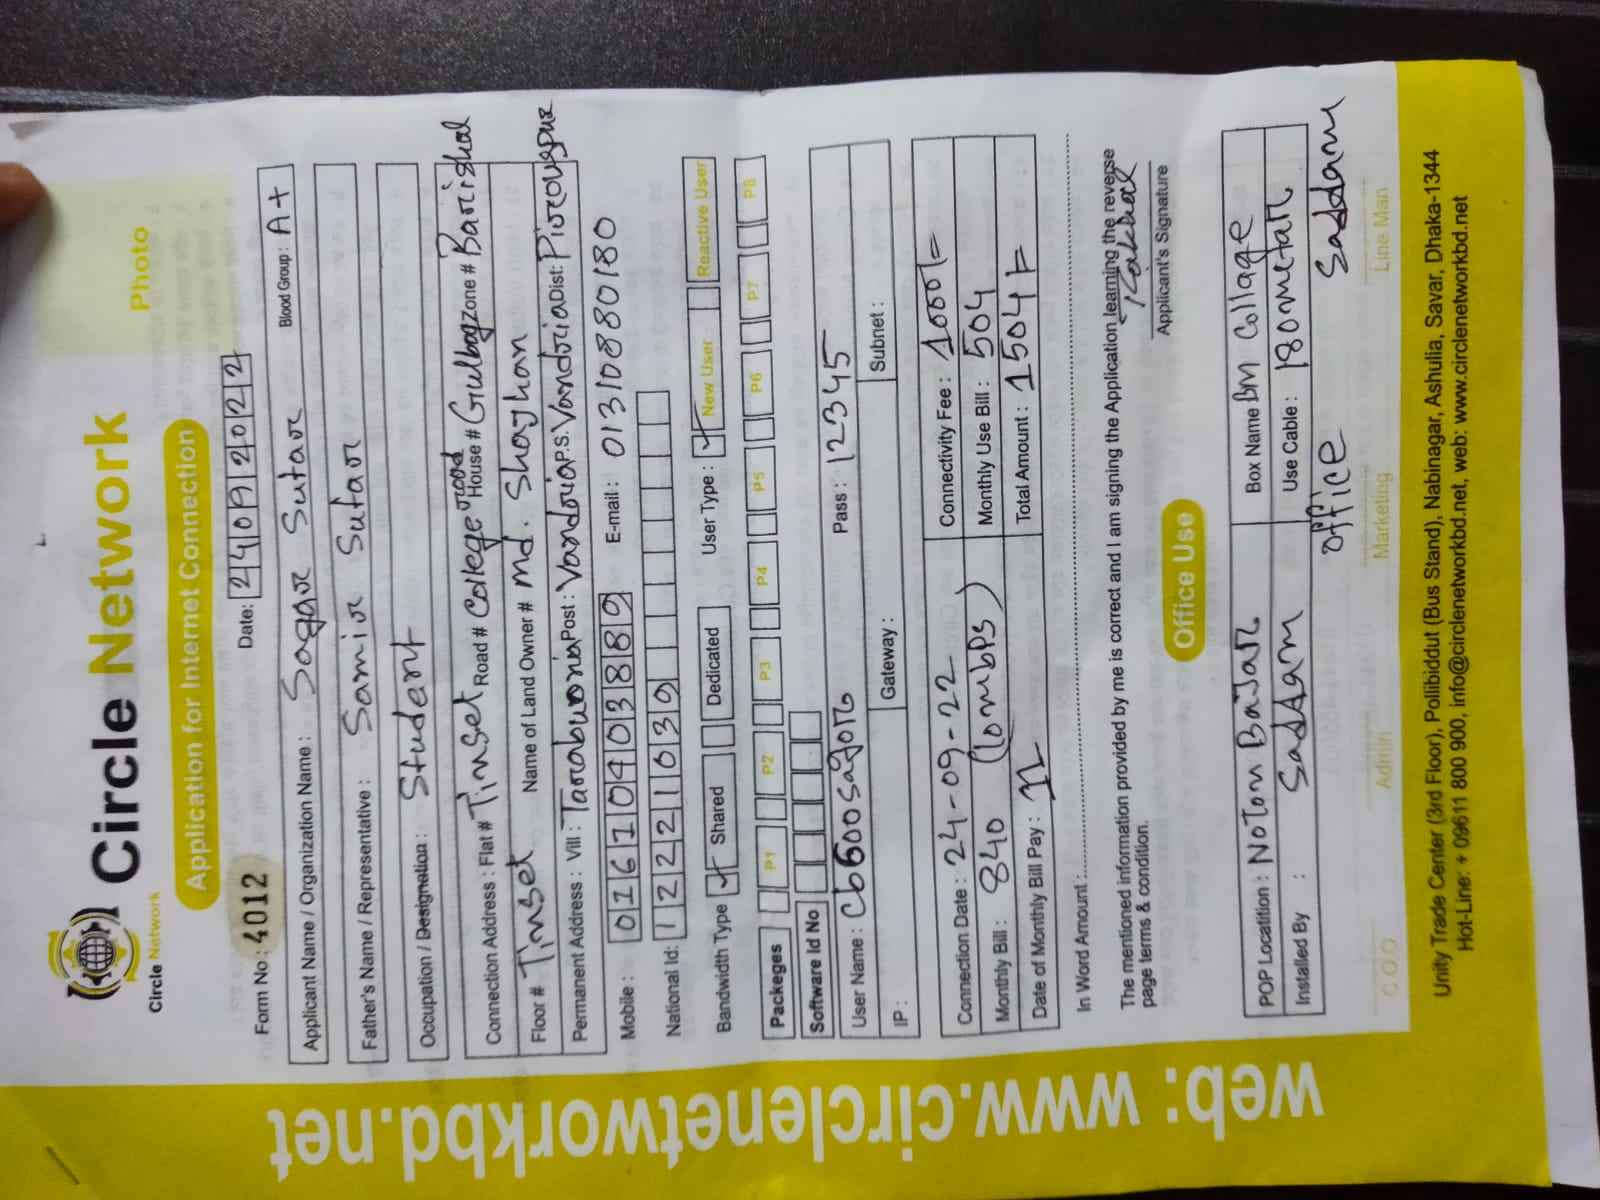 Circle Network
Circle Network
Photo
Application for Internet Connection
Form No : 4012
Date: 24092022
Applicant Name / Organization Name : Sagar Sutar Blood Group : A+
Father's Name / Representative : Samir Sutar
Occupation / Designation : Student
Connection Address : Flat # Tinset Road # College road House # Gulbag zone # Barishal
Floor # Tinset Name of Land Owner # Md. Shajhan
Permanent Address : Vill : Post : Vandria P.S. Vandria Dist:
Mobile : 01610403889 E-mail : 01310880180
National Id: 1222221039
Bandwidth Type Shared Dedicated User Type : New User Reactive User
Packeges P1 P2 P3 P4 P5 P6 P7 P8
Software Id No
User Name : Cb600sagor Pass : 12345
IP : Gateway : Subnet :
Connection Date : 24-09-22 Connectivity Fee : 1000/=
Monthly Bill : 840 (10mbPs) Monthly Use Bill : 504
Date of Monthly Bill Pay : Total Amount : 1504/=
In Word Amount :
The mentioned information provided by me is correct and I am signing the Application learning the reverse
page terms & condition.
Applicant's Signature
Office Use
POP Locatition : Noton Bajar Box Name BM Collage
Installed By : Saddam Use Cable : 180 metar
office Saddam
C O O Admin Marketing Line Man
Unity Trade Center (3rd Floor), Pollibiddut (Bus Stand), Nabinagar, Ashulia, Savar, Dhaka-1344
Hot-Line: + 09611 800 900, info@circlenetworkbd.net, web: www.circlenetworkbd.net
web: www.circlenetworkbd.net